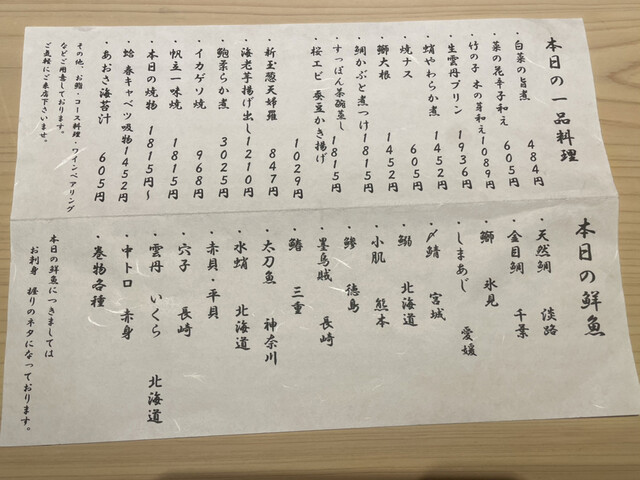 本日の一品料理
・白菜の旨煮 484円
・菜の花辛子和え 605円
・竹の子 木の芽和え 1089円
・生雲丹プリン 1936円
・蛸やわらか煮 1452円
・焼ナス 605円
・鰤大根 1452円
・鯛かぶと煮つけ 1815円
・すっぽん茶碗蒸し 1815円
・桜エビ 蚕豆かき揚げ 1029円
・新玉葱天婦羅 847円
・海老芋揚げ出し 1210円
・鮑柔らか煮 3025円
・イカゲソ焼 968円
・帆立一味焼 1815円
・本日の焼物 1815円〜
・蛤 春キャベツ吸物 1452円
・あおさ海苔汁 605円
その他、お鮨・コース料理・ワインペアリング
などご用意しております。
ご気軽にご来店下さいませ。
本日の鮮魚
・天然鯛 淡路
・金目鯛 千葉
・鰤 氷見
・しまあじ 愛媛
・〆鯖 宮城
・鰯 北海道
・小肌 熊本
・鯵 徳島
・墨烏賊 長崎
・鰆 三重
・太刀魚 神奈川
・水蛸 北海道
・赤貝・平貝
・穴子 長崎
・雲丹 いくら 北海道
・中トロ 赤身
・巻物各種
本日の鮮魚につきましては
お刺身 握りのネタになっております。